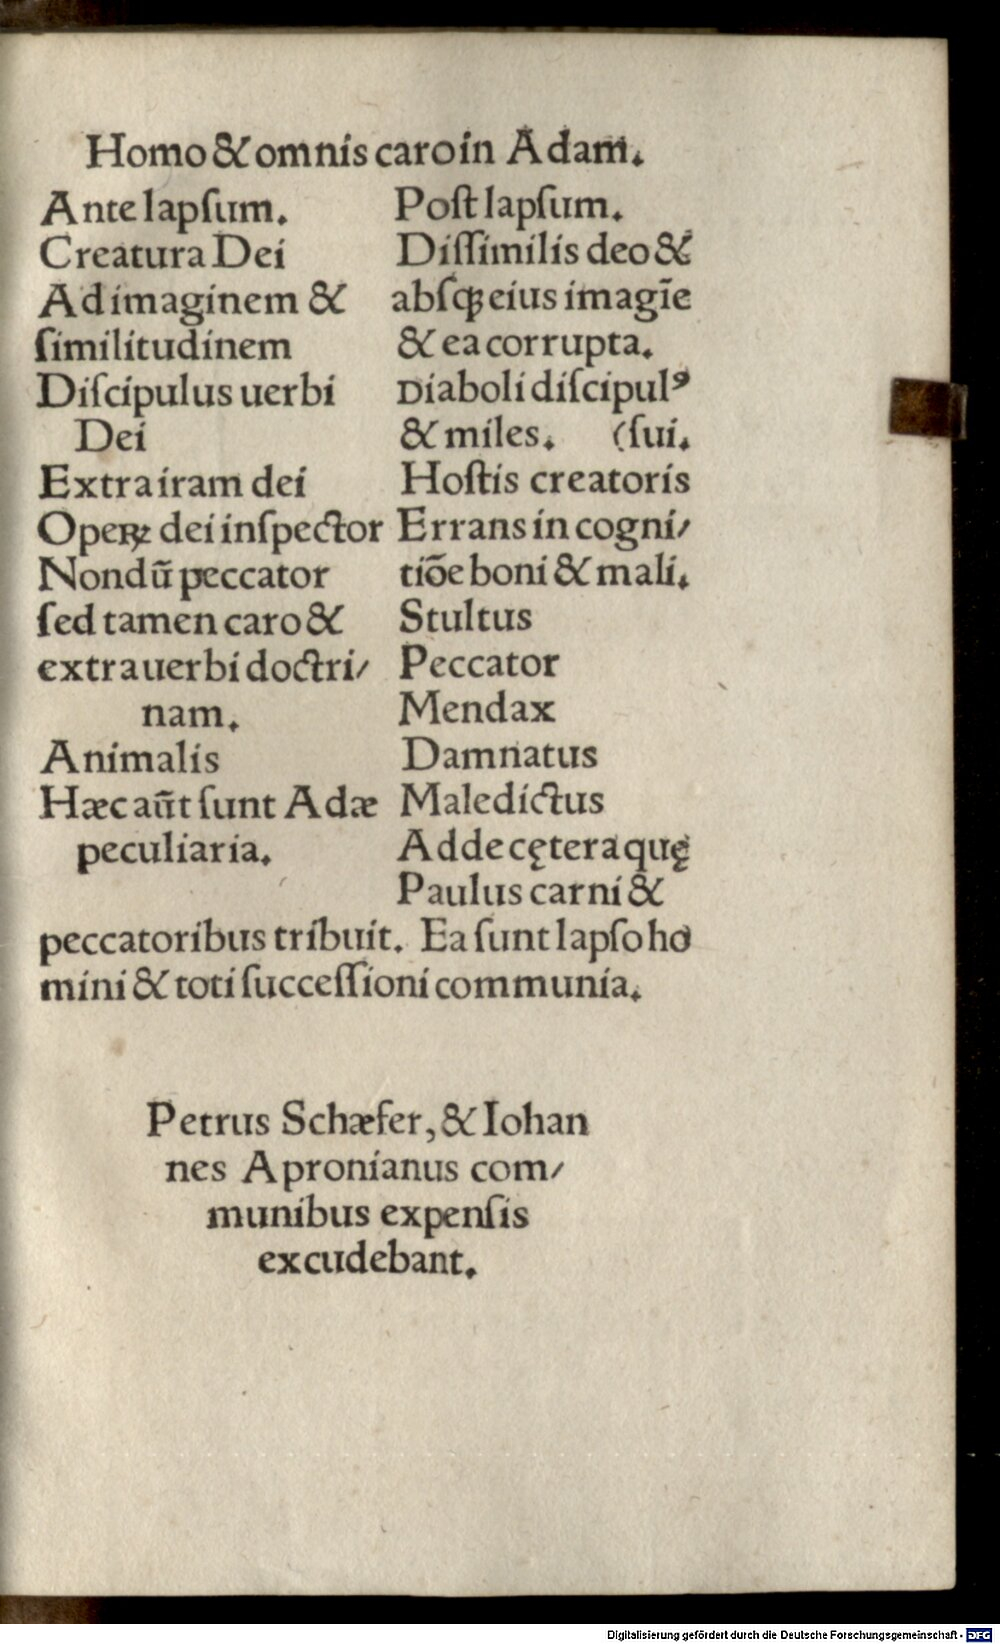 Homo & omnis caro in Adam.
Ante lapſum.
Creatura Dei
Ad imaginem &
ſimilitudinem
Diſcipulus uerbi
Dei
Extra iram dei
Operꝝ dei inſpector
Nondū peccator
ſed tamen caro &
extra uerbi doctri/
nam.
Animalis
Hæc aūt ſunt Adæ
peculiaria.
Poſt lapſum.
Diſſimilis deo &
abſqꝫ eius imagīe
& ea corrupta.
Diaboli diſcipulꝰ
& miles. (ſui.
Hoſtis creatoris
Errans in cogni/
tiōe boni & mali.
Stultus
Peccator
Mendax
Damnatus
Maledictus
Adde cętera quę
Paulus carni &
peccatoribus tribuit. Ea ſunt lapſo ho
mini & toti ſucceſſioni communia.
Petrus Schæfer, & Iohan
nes Apronianus com/
munibus expenſis
excudebant.
Digitalisierung gefördert durch die Deutsche Forschungsgemeinschaft - DFG